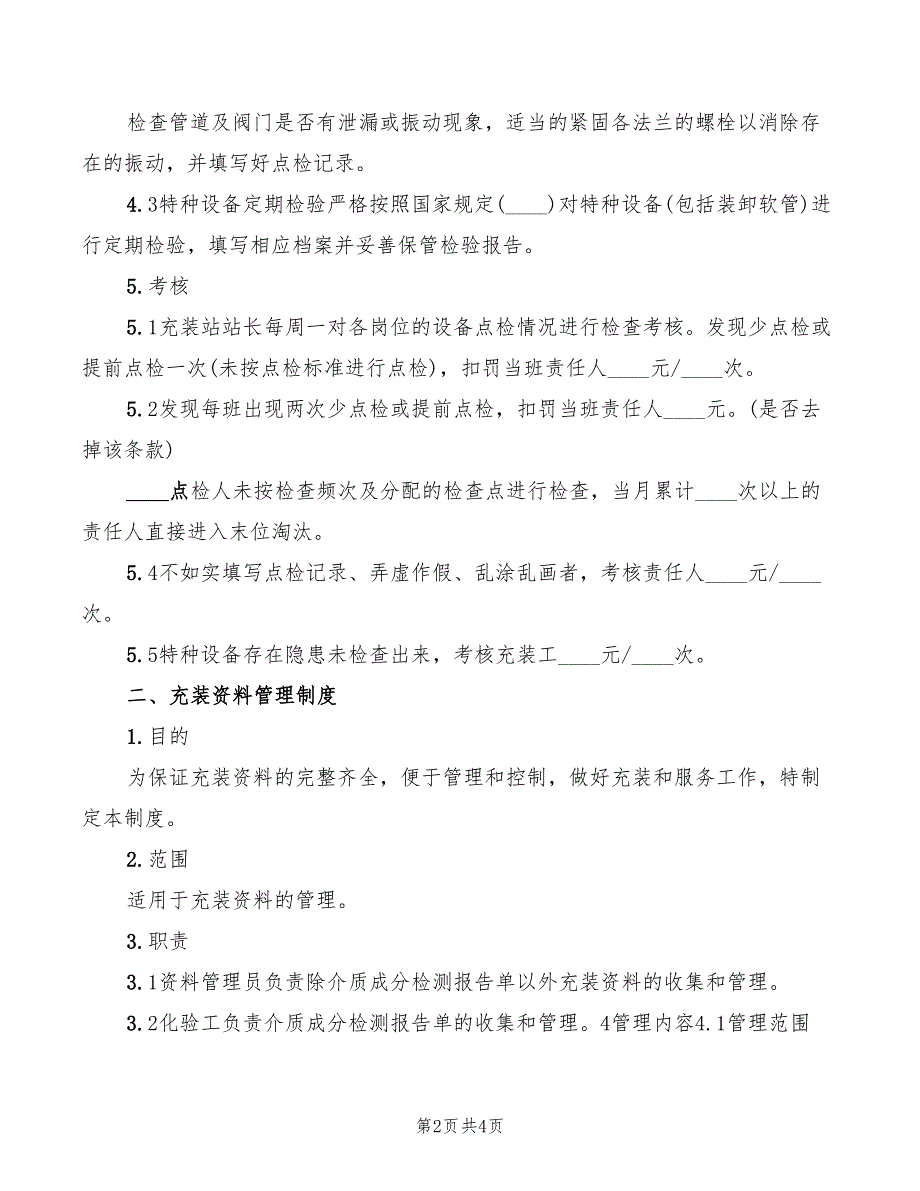 检查管道及阀门是否有泄漏或振动现象，适当的紧固各法兰的螺栓以消除存
在的振动，并填写好点检记录。
4.3特种设备定期检验严格按照国家规定(____)对特种设备(包括装卸软管)进
行定期检验，填写相应档案并妥善保管检验报告。
5.考核
5.1充装站站长每周一对各岗位的设备点检情况进行检查考核。发现少点检或
提前点检一次(未按点检标准进行点检)，扣罚当班责任人____元/____次。
5.2发现每班出现两次少点检或提前点检，扣罚当班责任人____元。(是否去
掉该条款)
____点检人未按检查频次及分配的检查点进行检查，当月累计____次以上的
责任人直接进入末位淘汰。
5.4不如实填写点检记录、弄虚作假、乱涂乱画者，考核责任人____元/____
次。
5.5特种设备存在隐患未检查出来，考核充装工____元/____次。
二、充装资料管理制度
1.目的
为保证充装资料的完整齐全，便于管理和控制，做好充装和服务工作，特制
定本制度。
2.范围
适用于充装资料的管理。
3.职责
3.1资料管理员负责除介质成分检测报告单以外充装资料的收集和管理。
3.2化验工负责介质成分检测报告单的收集和管理。4管理内容4.1管理范围
第2页共4页